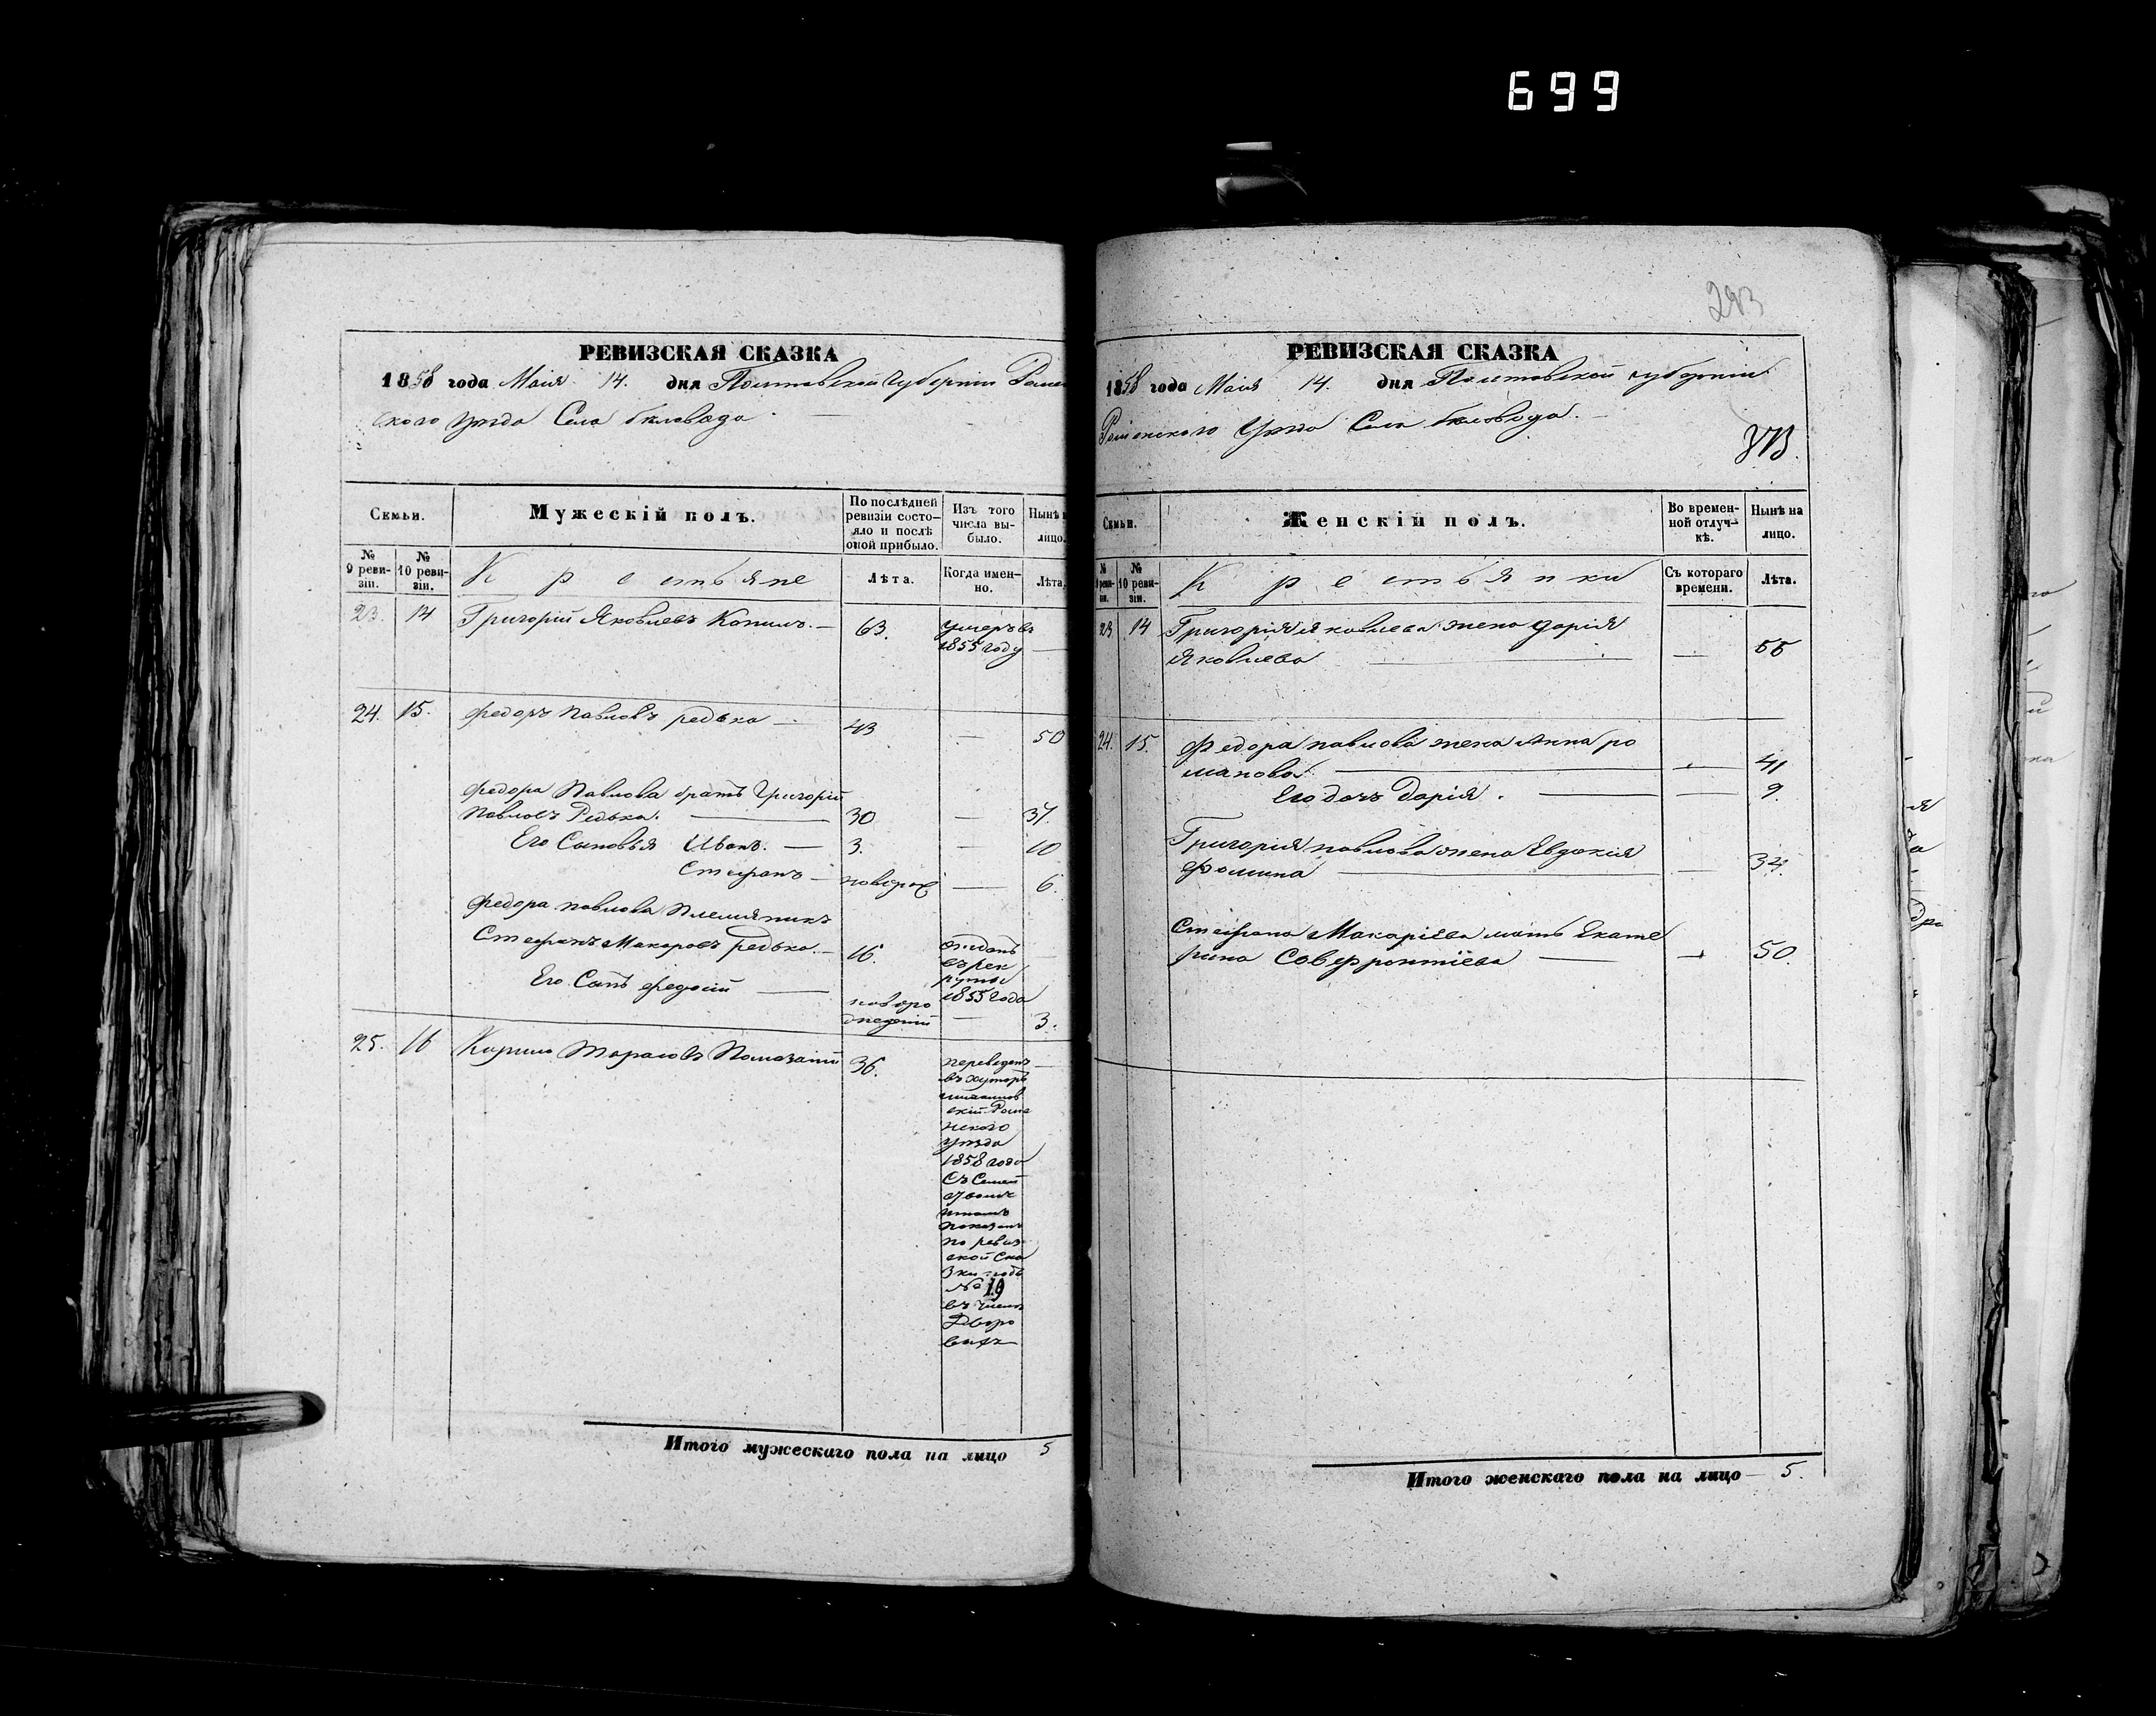 699
283
РЕВИЗСКАЯ СКАЗКА
1858 года Маія 14. дня Полтавской губерніи Ромен
ского уезда Села беловода
Семьи.
Мужескій полъ.
По послѣдней ревизіи состояло и послѣ оной прибыло.
Изъ того числа выбыло.
Нынѣ на лицо.
№ 9 ревизіи.
№ 10 ревизіи.
Крестьяне
Лѣта.
Когда именно.
Лѣта.
23. 14 Григорій Яковлевъ Копилъ. — 63. Умеръ въ
1855 году —
24. 15. Федоръ Павловъ редька — 43 — 50
Федора Павлова братъ Григорій
Павловъ Редька. — 30 — 37.
Его Сыновья Иванъ. — 3. — 10
Стефанъ — новорож — 6.
Федора павлова Племяникъ
Стефанъ Макаровъ редька. — 16. отданъ
въ рек
руты
1855 года —
Его Сынъ федосій — новоро
жденій — 3.
25. 16 Кирило Тарасовъ Помазан 36. переведенъ —
въ хуторъ
скій Роме
нского
уезда
1858 года
Съ Семей
ствомъ
показанъ
по ревиз
ской Ска
зки подъ
№ 19
въ числе
Дворо
выхъ
Итого мужескаго пола на лицо 5
РЕВИЗСКАЯ СКАЗКА
1858 года Маія 14. дня Полтавской губерніи
Роменского Уезда Села беловода.
Семьи.
Женскій полъ.
Во временной отлучкѣ.
Нынѣ на лицо.
№ 9 ревизіи.
№ 10 ревизіи.
Крестьянки
Съ котораго времени.
Лѣта.
23 14 Григорія яковлева жена дарія
Яковлева — — 55
24. 15. Федора павлова жена Анна ро
манова — — 41
Его дочь Дарія. — — 9.
Григорія павлова жена Евдокія
Фомина — — 34.
Стефана Макаріева мать Екате
рина Соверронтіева — — 50.
Итого женскаго пола на лицо — 5.